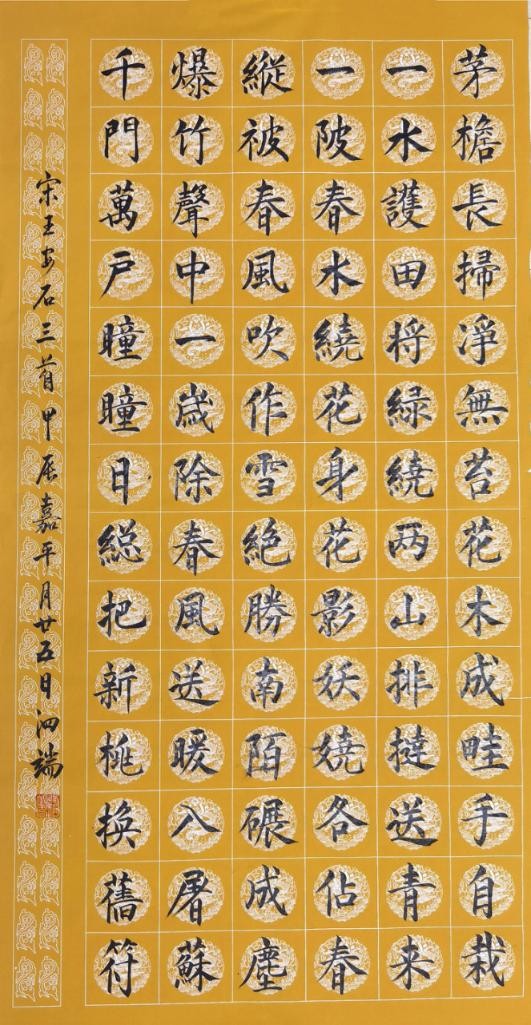 茅檐長掃淨無苔花木成畦手自栽
一水護田将緑繞两山排撻送青来
一陂春水繞花身花影妖嬈各佔春
縱被春風吹作雪絶勝南陌碾成塵
爆竹聲中一歲除春風送暖入屠蘇
千門萬户瞳瞳日総把新桃換舊符
宋王安石三首甲辰嘉平月廿五日泗端